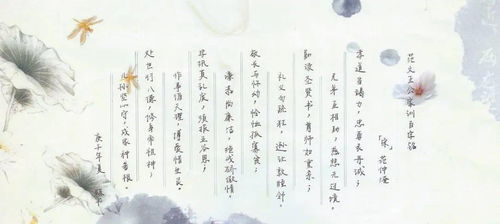 范文正公家训百字铭
「宋」范仲淹
孝道当竭力，忠勇表丹诚；
兄弟互相助，慈悲无过境。
勤读圣贤书，尊师如重亲；
礼义勿疏狂，逊让敦睦邻。
敬长与怀幼，怜恤孤寡贫；
谦恭尚廉洁，绝戒骄傲情。
字纸莫乱废，须报五谷恩；
作事循天理，博爱惜生灵。
处世行八德，修身率祖神；
儿孙坚心守，成家种善根。
庚子年夏